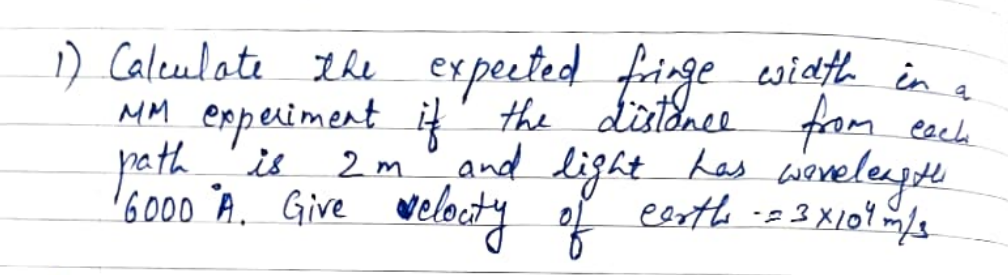 1) Calculate the expected fringe width in a
MM experiment if the distance from each
path is 2 m and light has wavelength
6000 Å. Give velocity of earth = 3 x 10⁴ m/s